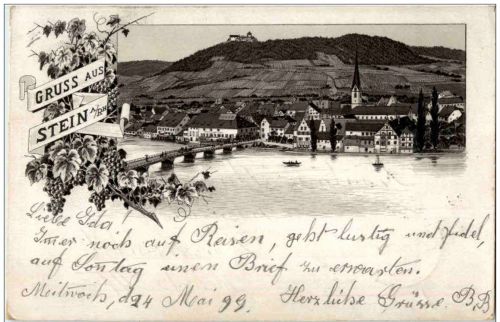 GRUSS AUS
STEIN A/RH.
Liebe Ida!
Imer noch auf Reisen, geht lustig und fidel,
auf Sontag einen Brief zu erwarten.
Meitwoch, d. 24 Mai 99. Herzliche Grüsse. B. B.